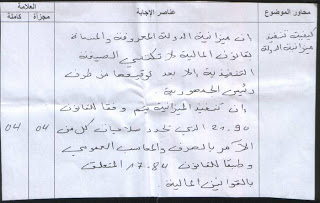 العلامة
محاور الموضوع
عناصر الإجابة
مجزأة
كاملة
كيفية تنفيذ
ميزانية الدولة
ان ميزانية الدولة المعروفة والمسماة
لقانون المالية لا تكتسي الصيغة
التنفيذية الا بعد توقيعها من طرف
رئيس الجمهورية.
ان تنفيذ الميزانية يتم وفقا للقانون
21.90 الذي يحدد صلاحيات كل من
الآمر بالصرف والمحاسب العمومي
04
04
وطبقا للقانون 17.84 المتعلق
بالقوانين المالية